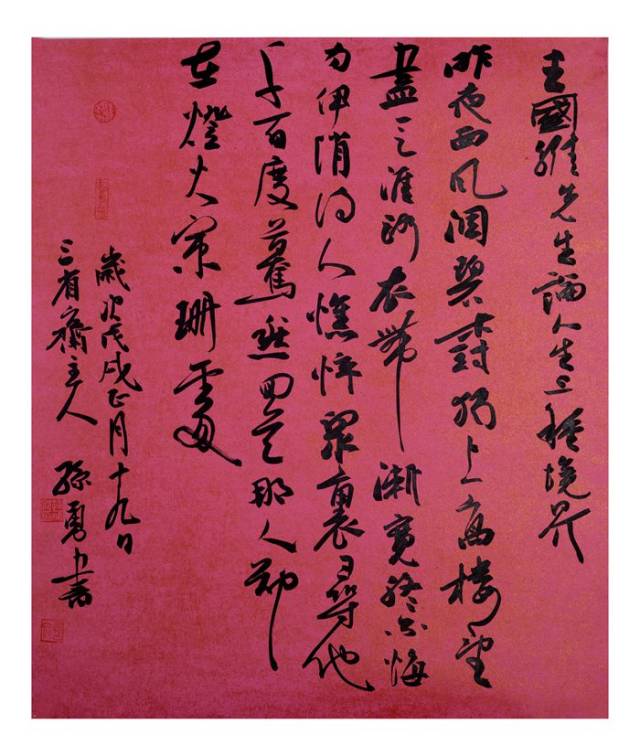 王國維先生論人生三種境界
昨夜西风凋碧樹獨上高樓望
盡天涯路衣帶漸寬終不悔
为伊消得人憔悴眾裏尋他
千百度驀然回首那人卻
在燈火闌珊處
歲次戊戌正月十九日
三有齋主人 孫勇书